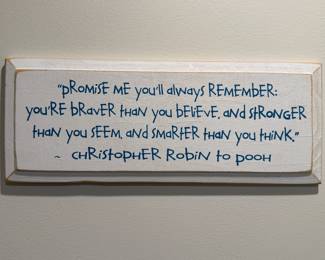 "PROMISE ME YOU'LL ALWAYS REMEMBER:
YOU'RE BRAVER THAN YOU BELIEVE, AND STRONGER
THAN YOU SEEM, AND SMARTER THAN YOU THINK."
~ CHRISTOPHER ROBIN TO POOH